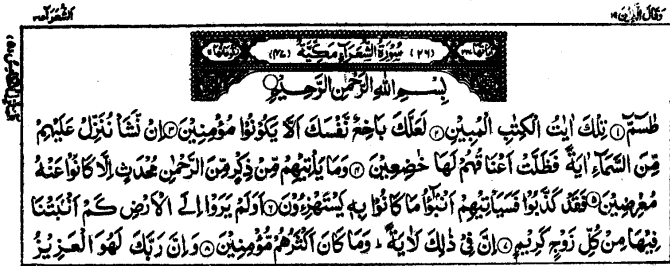 وقال الذين ١٩
الشعرآء ٢٦
(٢٦) سُوْرَةُ الشُّعَرَآءِ مَكِّيَّةٌ (٤٧)
بِسْمِ اللهِ الرَّحْمٰنِ الرَّحِيْمِ
طٰسٓمّٓ ۝١ تِلْكَ اٰيٰتُ الْكِتٰبِ الْمُبِيْنِ ۝٢ لَعَلَّكَ بَاخِعٌ نَّفْسَكَ اَلَّا يَكُوْنُوْا مُؤْمِنِيْنَ ۝٣ اِنْ نَّشَاْ نُنَزِّلْ عَلَيْهِمْ
مِّنَ السَّمَآءِ اٰيَةً فَظَلَّتْ اَعْنَاقُهُمْ لَهَا خٰضِعِيْنَ ۝٤ وَمَا يَاْتِيْهِمْ مِّنْ ذِكْرٍ مِّنَ الرَّحْمٰنِ مُحْدَثٍ اِلَّا كَانُوْا عَنْهُ
مُعْرِضِيْنَ ۝٥ فَقَدْ كَذَّبُوْا فَسَيَاْتِيْهِمْ اَنْۢبٰٓؤُا مَا كَانُوْا بِهٖ يَسْتَهْزِءُوْنَ ۝٦ اَوَلَمْ يَرَوْا اِلَى الْاَرْضِ كَمْ اَنْۢبَتْنَا
فِيْهَا مِنْ كُلِّ زَوْجٍ كَرِيْمٍ ۝٧ اِنَّ فِيْ ذٰلِكَ لَاٰيَةً ؕ وَمَا كَانَ اَكْثَرُهُمْ مُّؤْمِنِيْنَ ۝٨ وَاِنَّ رَبَّكَ لَهُوَ الْعَزِيْزُ